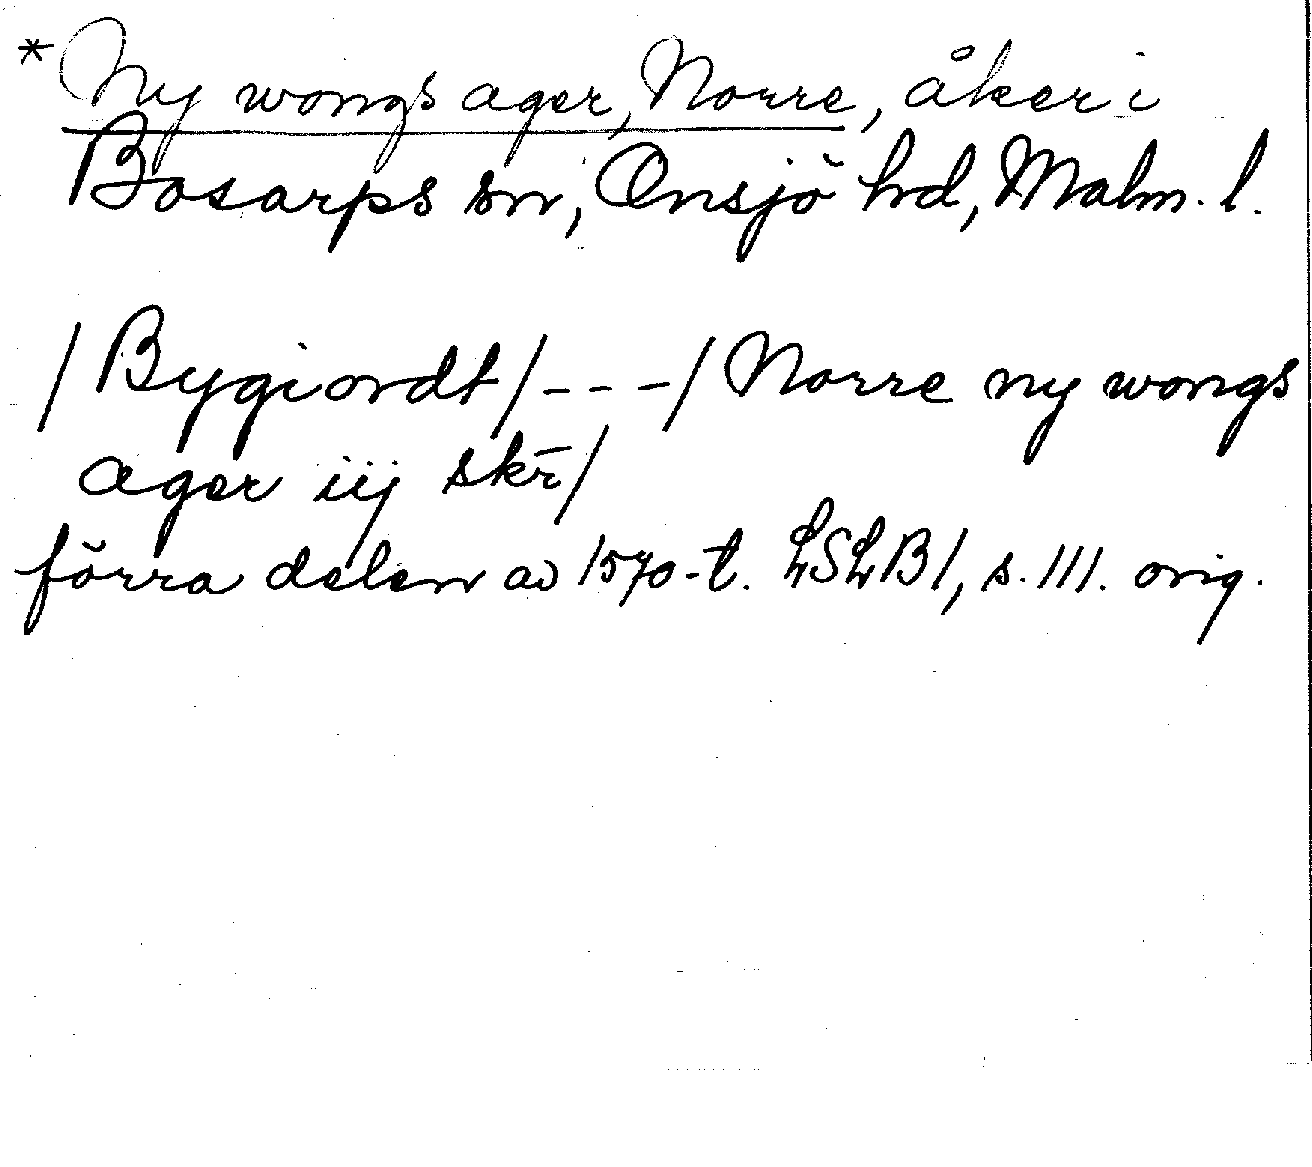 * Ny wongs ager, Norre, åker i
Bosarps sn, Onsjö hd, Malm. l.
/ Bygiordt / - - - / Norre ny wongs
ager iij skr̄ /
förra delen av 1570-t. LSLB1, s. 111. orig.